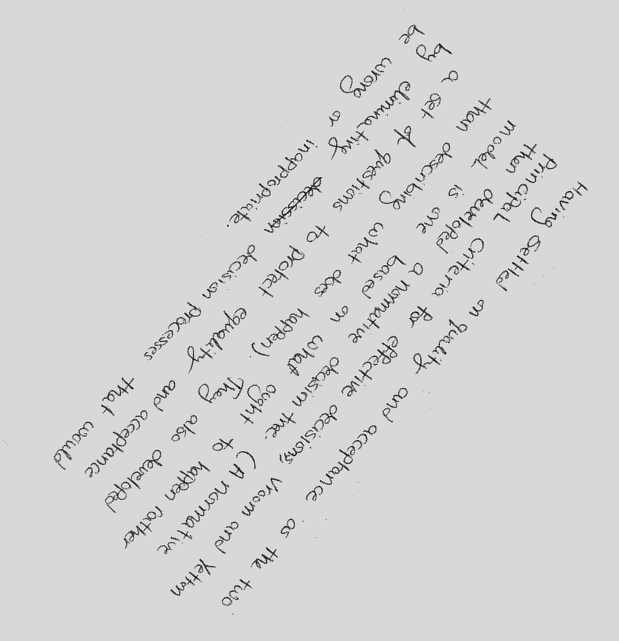 Having settled on quality and acceptance as the two
Principal criteria for effective decisions, Vroom and Yetton
then developed a normative decision tree. (A normative
model is one based on what ought to happen rather
than describing what does happen). They also developed
a set of questions to protect equality and acceptance
by eliminative decision processes that would
be wrong or inappropriate.